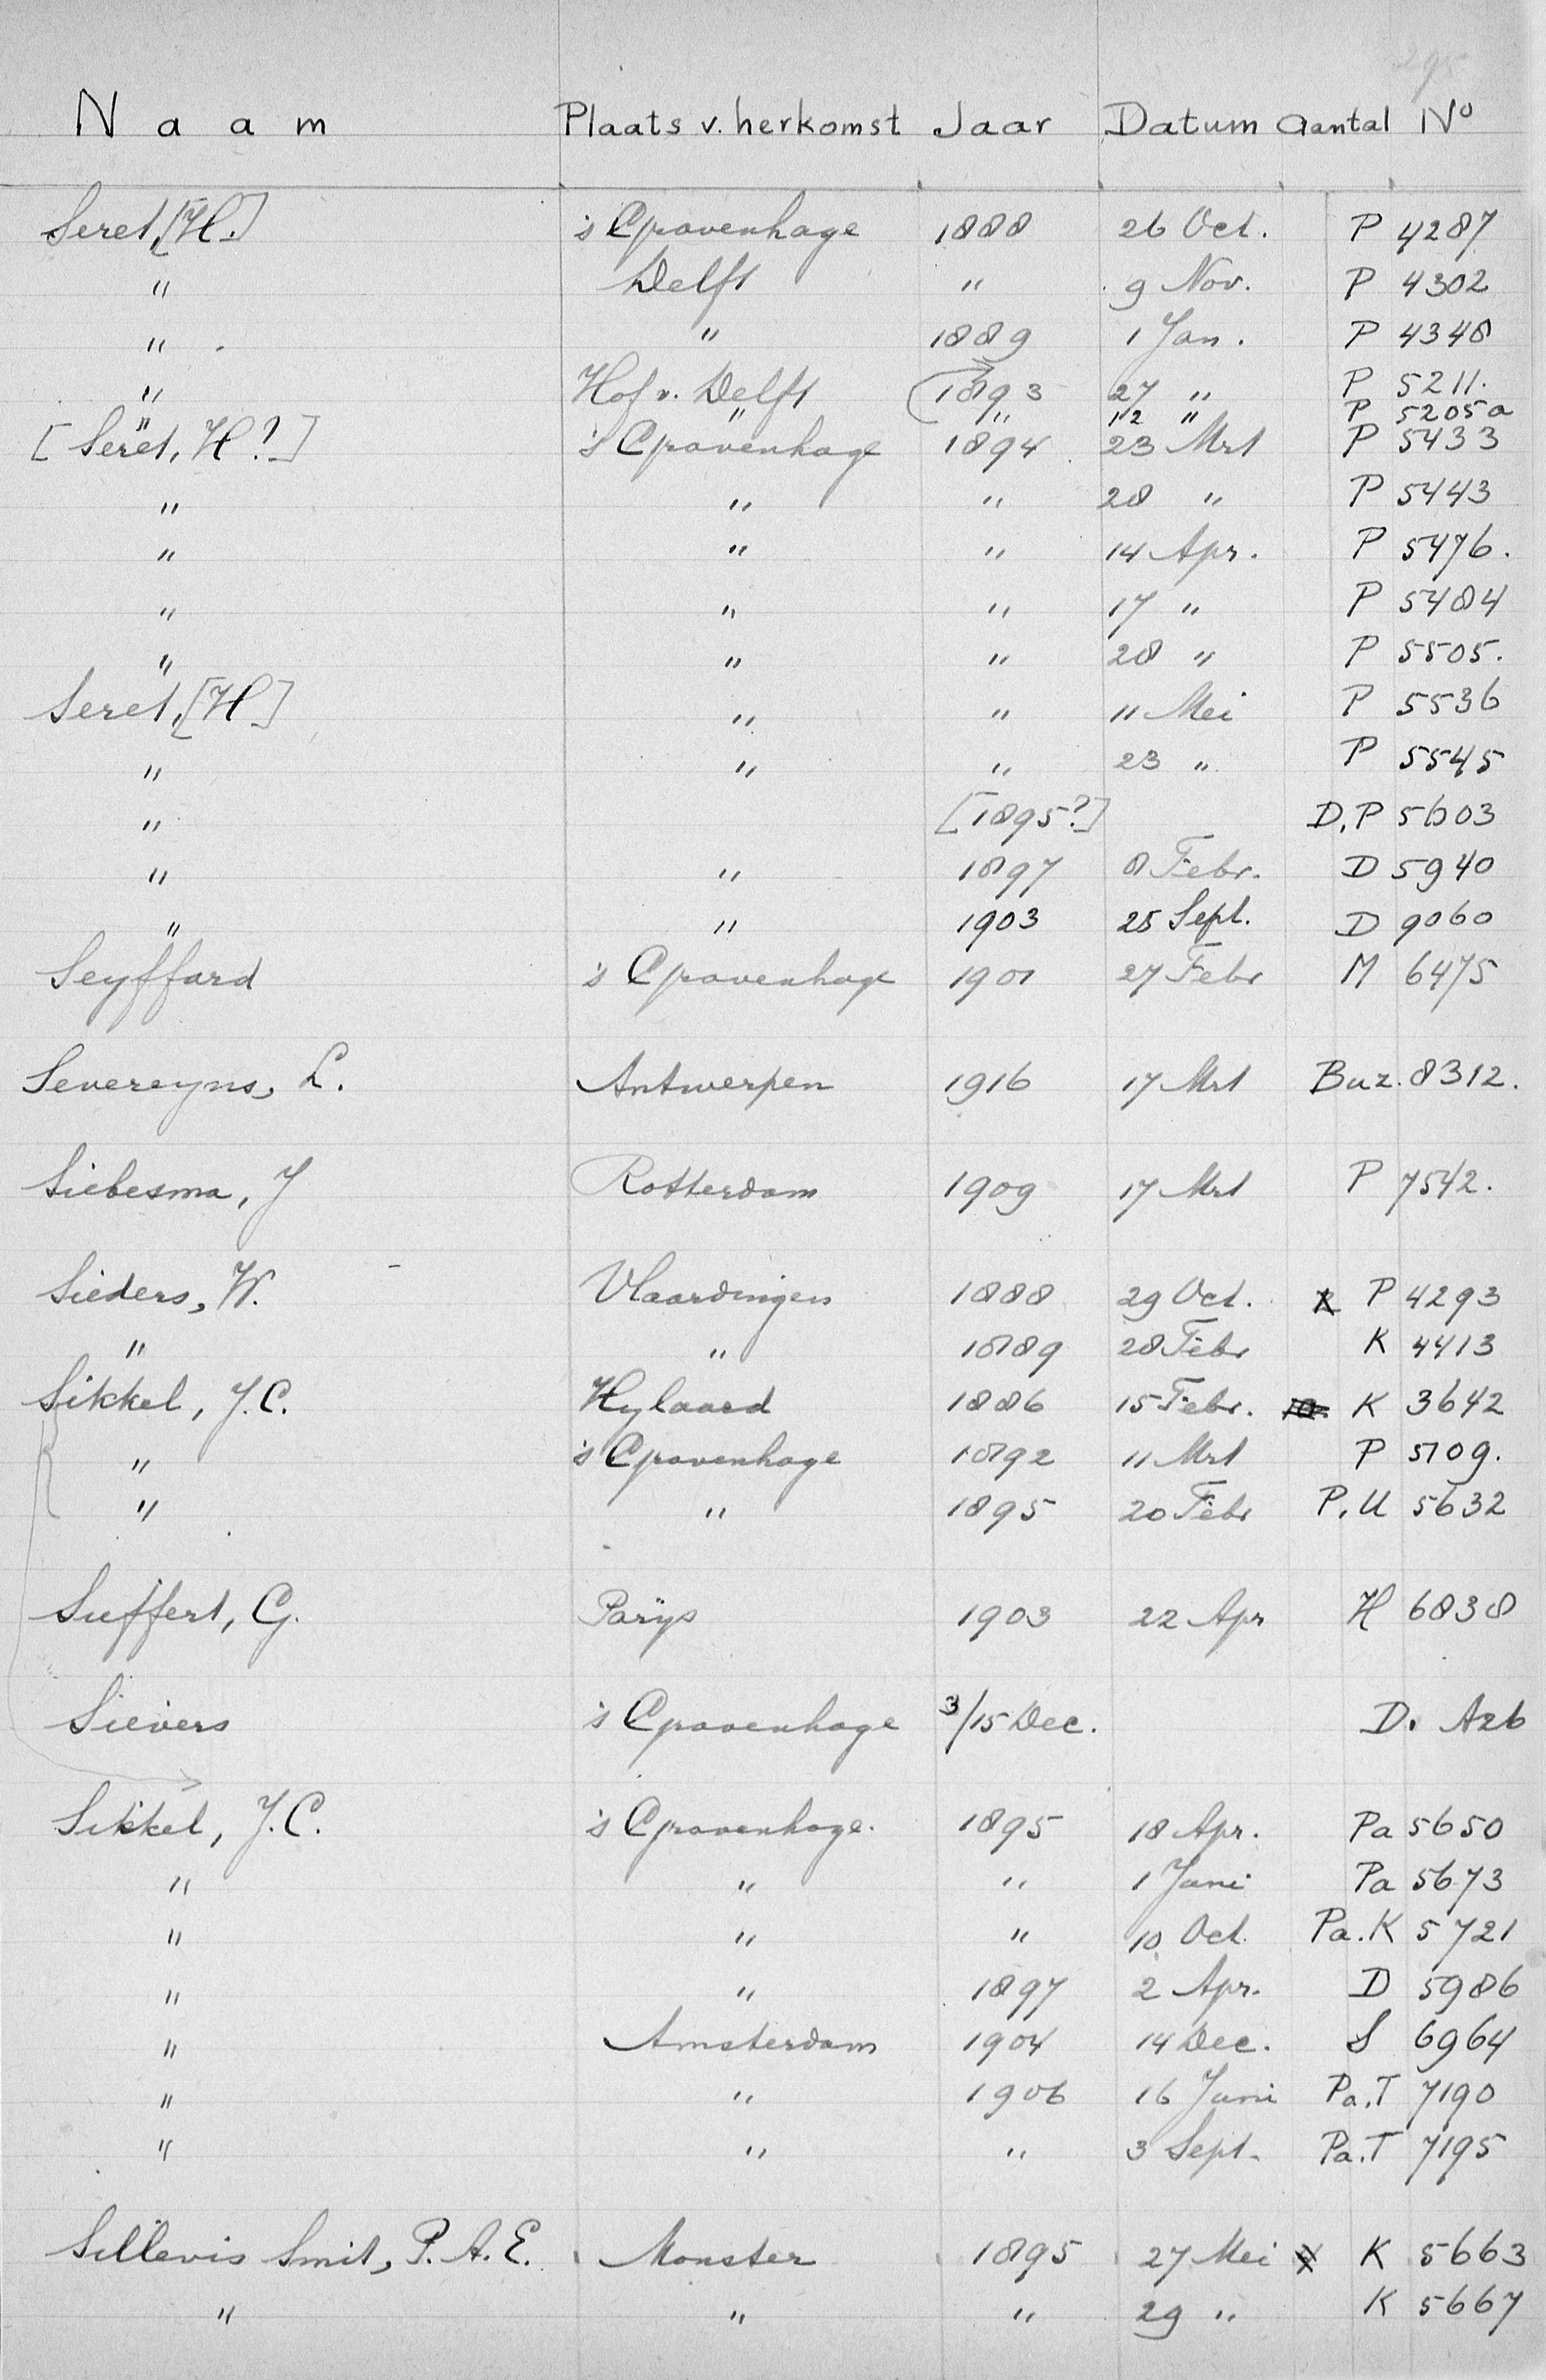 295
Naam Plaats v. herkomst Jaar Datum Aantal No
Seret, [H.] 's Gravenhage 1888 26 Oct. P 4287
" Delft " 9 Nov. P 4302
" " 1889 1 Jan. P 4348
" Hof v. Delft 1893 27 " P 5211.
" " " 12 " P 5205a
[Seret, H?] 's Gravenhage 1894 23 Mrt P 5433
" " " 28 " P 5443
" " " 14 Apr. P 5476.
" " " 17 " P 5484
" " " 28 " P 5505.
Seret, [H] " " 11 Mei P 5536
" " " 23 " P 5545
" [1895?] D.P 5603
" " 1897 8 Febr. D 5940
" " 1903 25 Sept. D 9060
Seyffard 's Gravenhage 1901 27 Febr M 6475
Severeyns, L. Antwerpen 1916 17 Mrt Buz. 8312.
Siebesma, J Rotterdam 1909 17 Mrt P 7542.
Sieders, W. Vlaardingen 1888 29 Oct. P 4293
" " 1889 28 Febr K 4413
Sikkel, J.C. Hylaard 1886 15 Febr. K 3642
" 's Gravenhage 1892 11 Mrt P 5109.
" " 1895 20 Febr P.U 5632
Sieffert, G. Parijs 1903 22 Apr H 6838
Sievers 's Gravenhage 3/15 Dec. D. Azb
Sikkel, J.C. 's Gravenhage. 1895 18 Apr. Pa 5650
" " " 1 Juni Pa 5673
" " " 10 Oct. Pa.K 5721
" " 1897 2 Apr. D 5986
" Amsterdam 1904 14 Dec. S 6964
" " 1906 16 Juni Pa.T 7190
" " " 3 Sept. Pa.T 7195
Sillevis Smit, P.A.E. Monster 1895 27 Mei K 5663
" " " 29 " K 5667